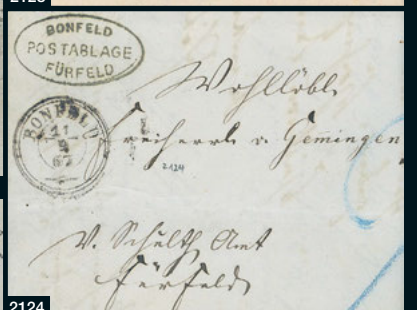 BONFELD
POSTABLAGE
FÜRFELD
BONFELD
11
67
Wohllöbl.
Freiherrl. v. Gemingen
2124
V. Schulth. Amt
Fürfeld
2124